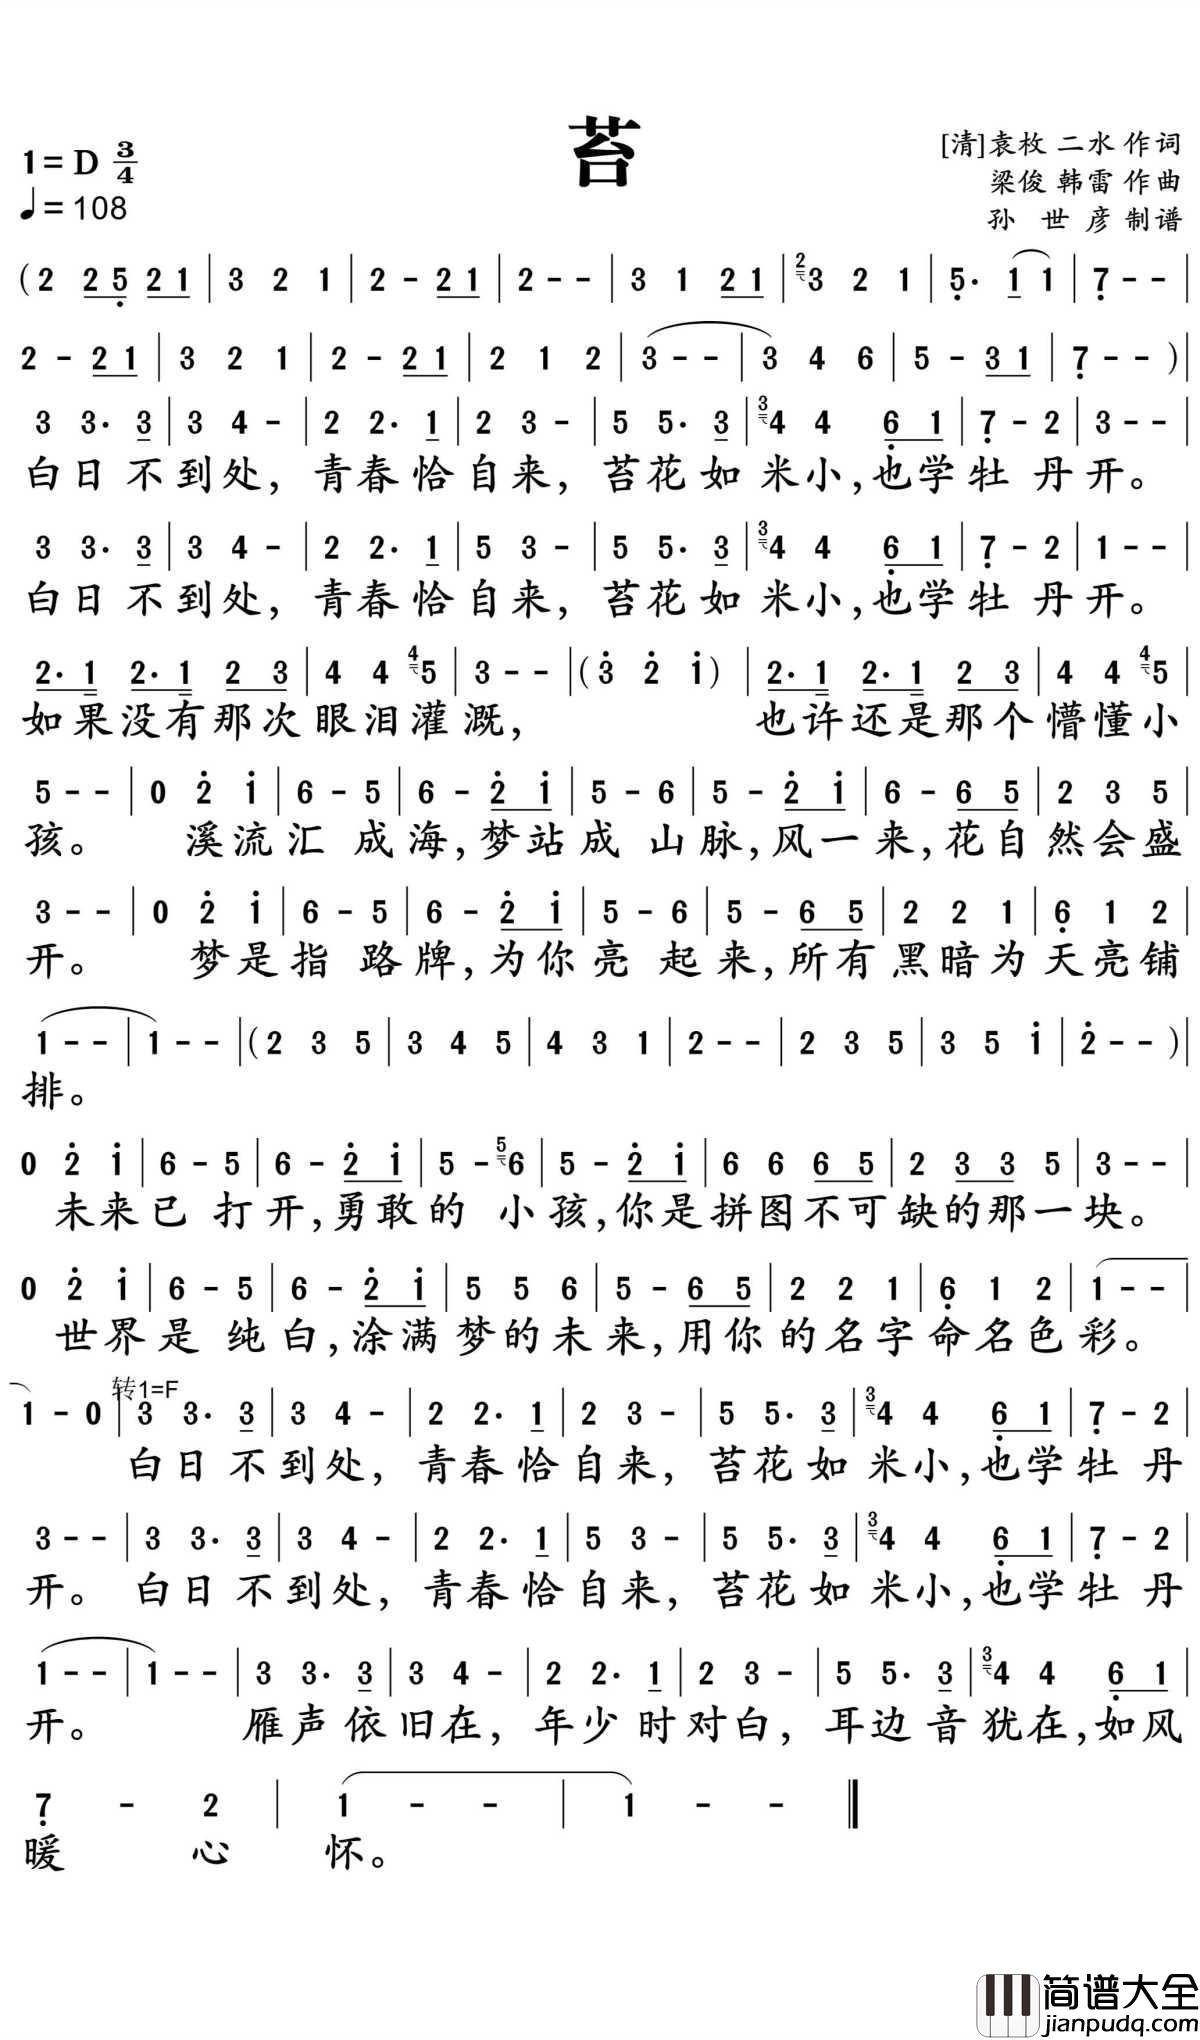 苔
1=D 3/4
♩=108
[清]袁枚 二水 作词
梁俊 韩雷 作曲
孙 世 彦 制谱
(2 2 5̣ 2 1 | 3 2 1 | 2 - 2 1 | 2 - - | 3 1 2 1 | 2 3 2 1 | 5̣· 1 1 | 7̣ - - |
2 - 2 1 | 3 2 1 | 2 - 2 1 | 2 1 2 | 3 - - | 3 4 6 | 5 - 3 1 | 7̣ - - )|
3 3· 3 | 3 4 - | 2 2· 1 | 2 3 - | 5 5· 3 | 3 4 4 6̣ 1 | 7̣ - 2 | 3 - - |
白日不到处，青春恰自来，苔花如米小，也学牡丹开。
3 3· 3 | 3 4 - | 2 2· 1 | 5 3 - | 5 5· 3 | 3 4 4 6̣ 1 | 7̣ - 2 | 1 - - |
白日不到处，青春恰自来，苔花如米小，也学牡丹开。
2· 1 2· 1 2 3 | 4 4 4 5 | 3 - - |(3̇ 2̇ 1̇) | 2· 1 2· 1 2 3 | 4 4 4 5 |
如果没有那次眼泪灌溉，也许还是那个懵懂小
5 - - | 0 2̇ 1̇ | 6 - 5 | 6 - 2̇ 1̇ | 5 - 6 | 5 - 2̇ 1̇ | 6 - 6 5 | 2 3 5 |
孩。溪流汇成海，梦站成山脉，风一来，花自然会盛
3 - - | 0 2̇ 1̇ | 6 - 5 | 6 - 2̇ 1̇ | 5 - 6 | 5 - 6 5 | 2 2 1 | 6̣ 1 2 |
开。梦是指路牌，为你亮起来，所有黑暗为天亮铺
1 - - | 1 - - |(2 3 5 | 3 4 5 | 4 3 1 | 2 - - | 2 3 5 | 3 5 1̇ | 2̇ - - )|
排。
0 2̇ 1̇ | 6 - 5 | 6 - 2̇ 1̇ | 5 - 5 6 | 5 - 2̇ 1̇ | 6 6 6 5 | 2 3 3 5 | 3 - - |
未来已打开，勇敢的小孩，你是拼图不可缺的那一块。
0 2̇ 1̇ | 6 - 5 | 6 - 2̇ 1̇ | 5 5 6 | 5 - 6 5 | 2 2 1 | 6̣ 1 2 | 1 - - |
世界是纯白，涂满梦的未来，用你的名字命名色彩。
转1=F
1 - 0 | 3 3· 3 | 3 4 - | 2 2· 1 | 2 3 - | 5 5· 3 | 3 4 4 6̣ 1 | 7̣ - 2 |
白日不到处，青春恰自来，苔花如米小，也学牡丹
3 - - | 3 3· 3 | 3 4 - | 2 2· 1 | 5 3 - | 5 5· 3 | 3 4 4 6̣ 1 | 7̣ - 2 |
开。白日不到处，青春恰自来，苔花如米小，也学牡丹
1 - - | 1 - - | 3 3· 3 | 3 4 - | 2 2· 1 | 2 3 - | 5 5· 3 | 3 4 4 6̣ 1 |
开。雁声依旧在，年少时对白，耳边音犹在，如风
7̣ - 2 | 1 - - | 1 - - ‖
暖心怀。
简谱大全
jianpudq.com